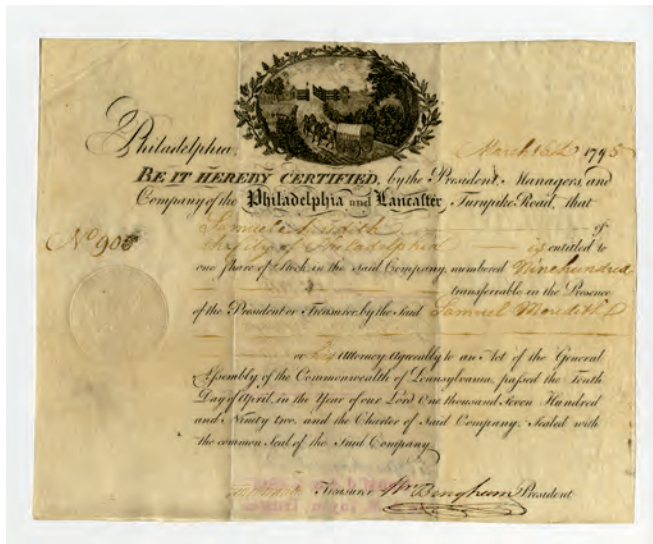 Philadelphia, March 16th 1795
BE IT HEREBY CERTIFIED, by the President, Managers, and
Company of the Philadelphia and Lancaster Turnpike Road, that
Samuel Meredith of
the City of Philadelphia is entitled to
No 905
one Share of Stock in the said Company, numbered Ninehundred
transferrable in the Presence
of the President or Treasurer, by the said Samuel Meredith
or his Attorney, Agreeably to an Act of the General
Assembly of the Commonwealth of Pennsylvania, passed the Tenth
Day of April, in the Year of our Lord One thousand Seven Hundred
and Ninety two, and the Charter of said Company, Sealed with
the common Seal of the said Company.
Treasurer Wm Bingham President